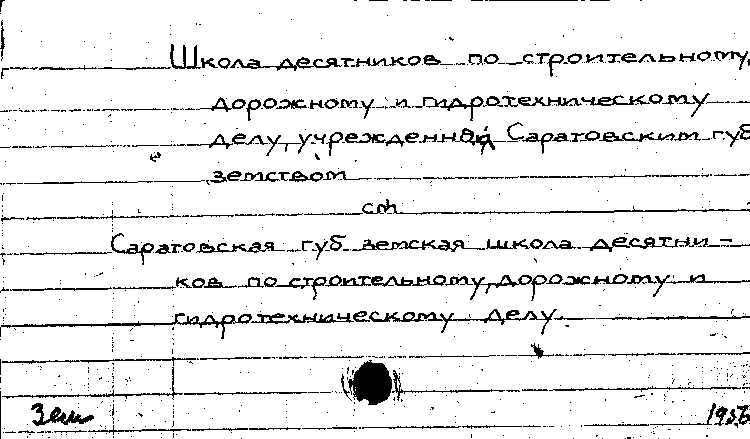 Школа десятников по строительному,
дорожному и гидротехническому
делу, учрежденная Саратовским губ
земством
см.
Саратовская губ земская школа десятни-
ков по строительному, дорожному и
гидротехническому делу.
Земл
1956